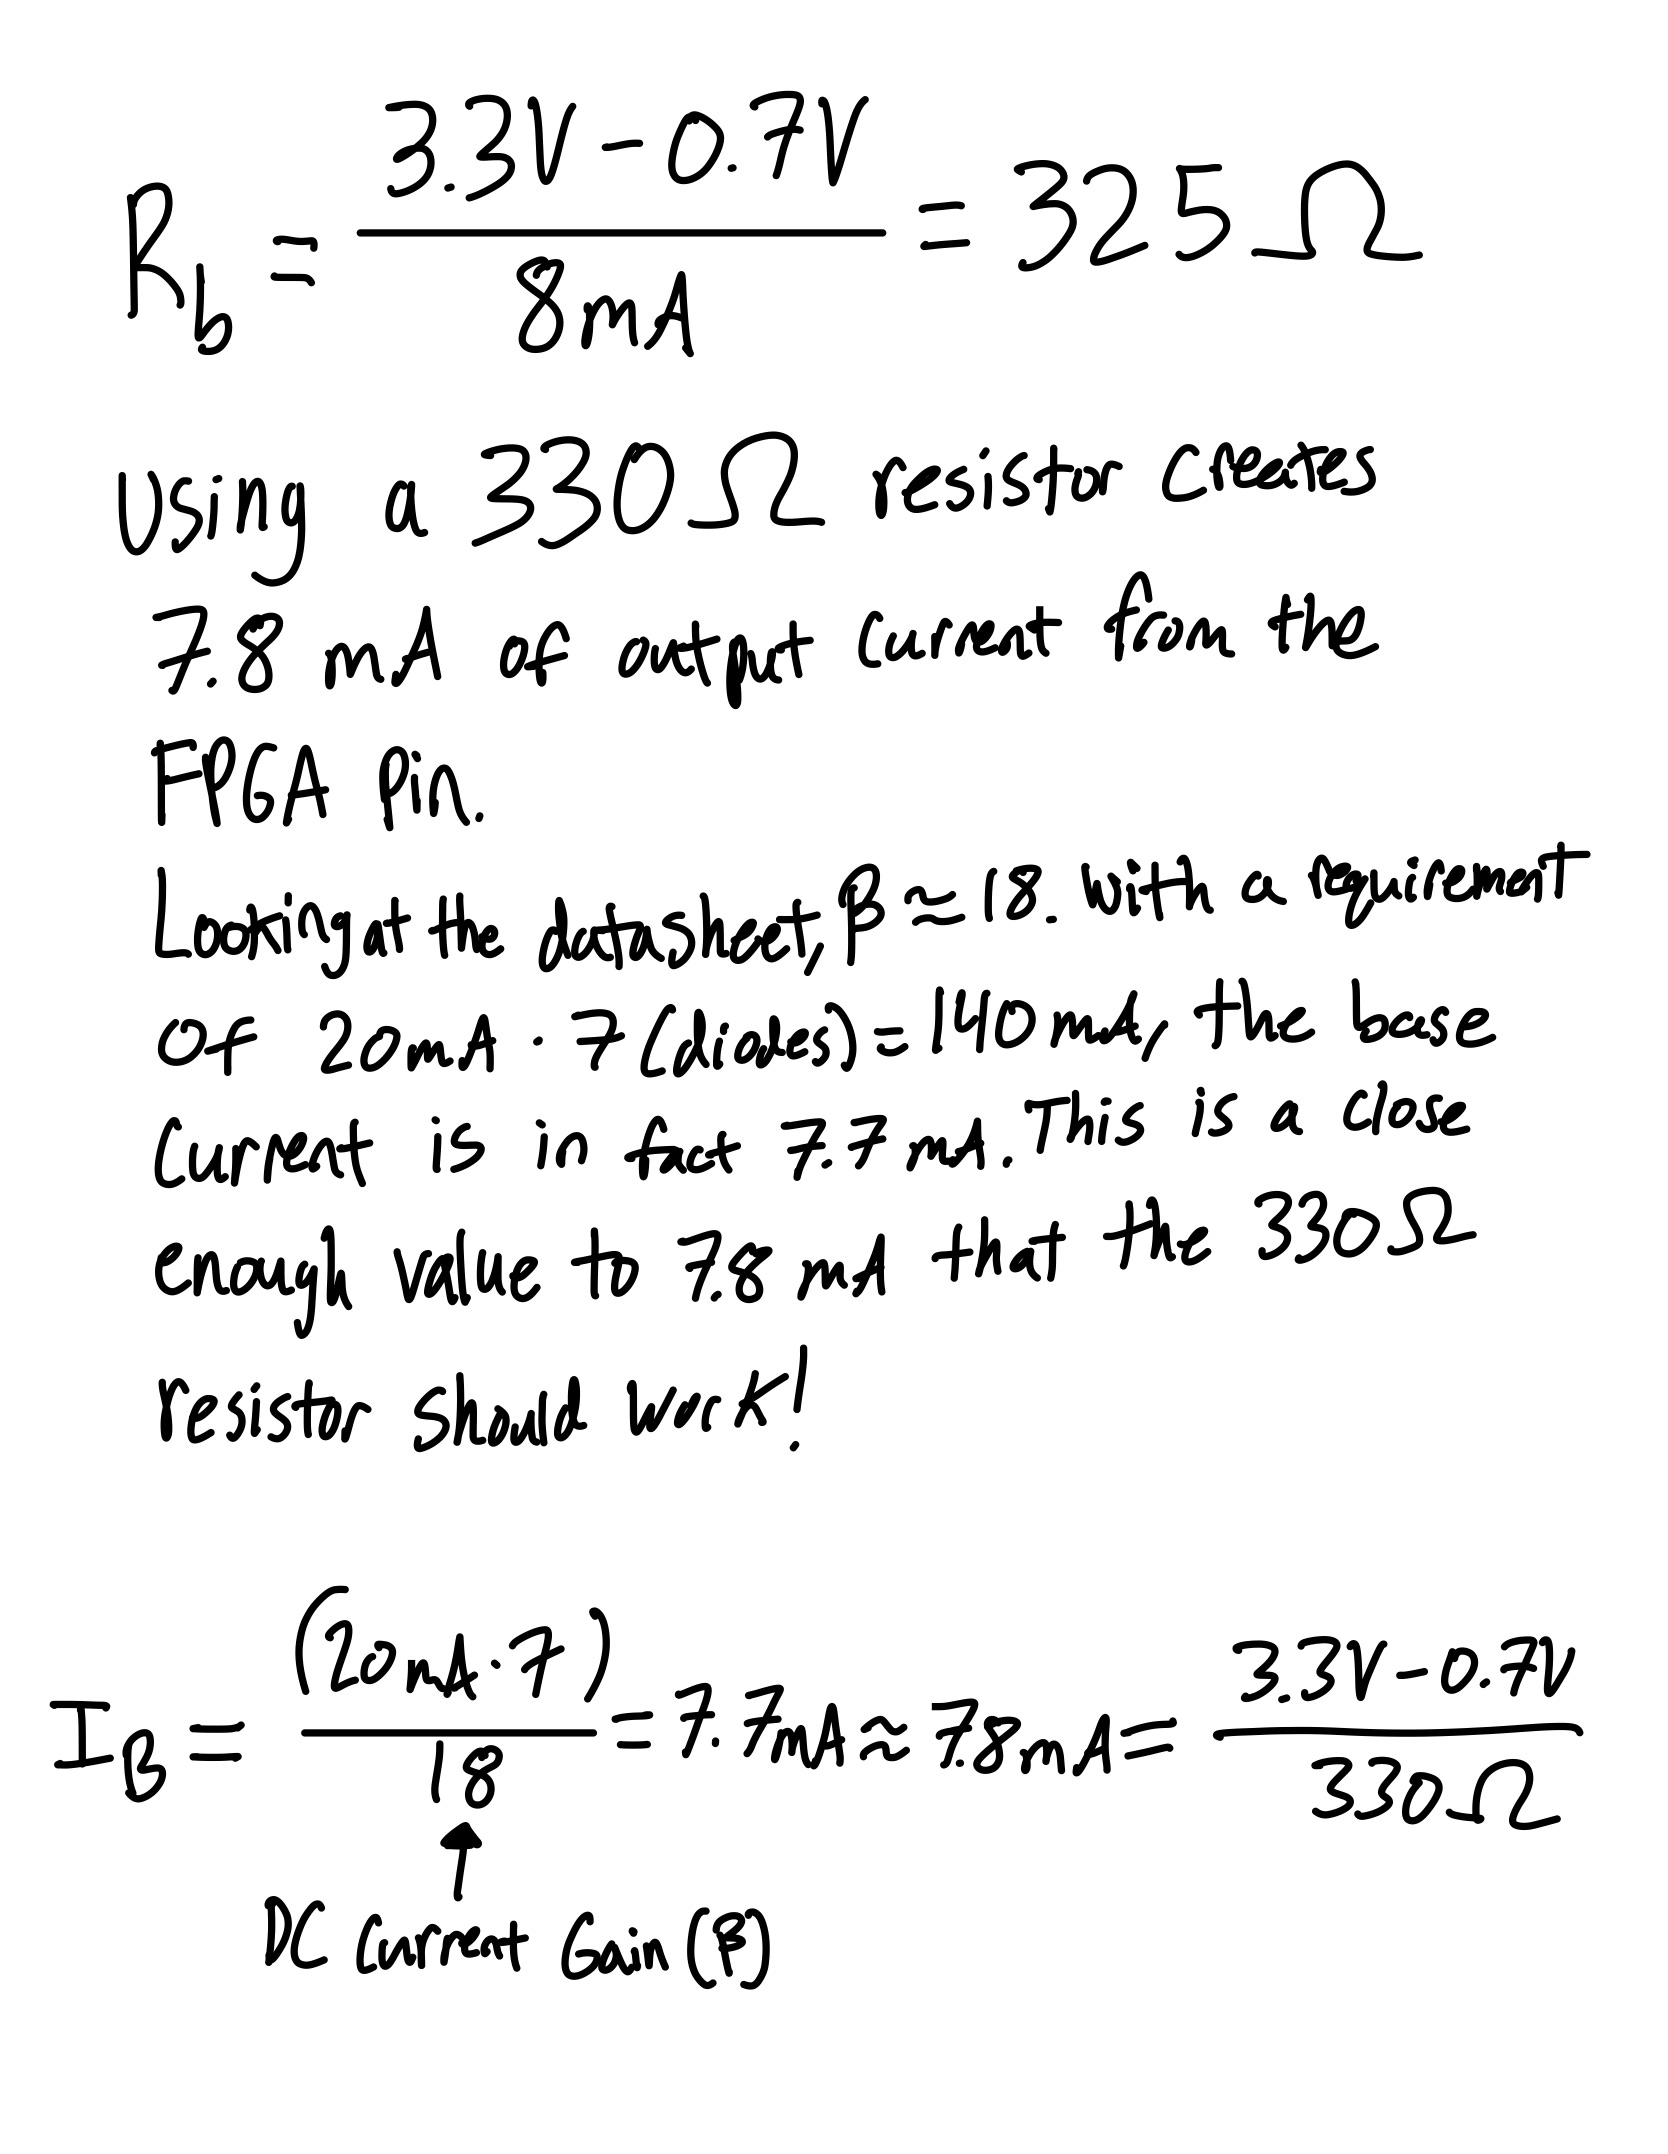 R_b = (3.3V - 0.7V) / 8mA = 325 Ω
Using a 330 Ω resistor creates
7.8 mA of output current from the
FPGA pin.
Looking at the datasheet, β ≈ 18. With a requirement
of 20mA · 7 (diodes) = 140 mA, the base
current is in fact 7.7 mA. This is a close
enough value to 7.8 mA that the 330 Ω
resistor should work!
I_B = (20mA · 7) / 18 = 7.7mA ≈ 7.8mA = (3.3V - 0.7V) / 330 Ω
↑
DC Current Gain (β)